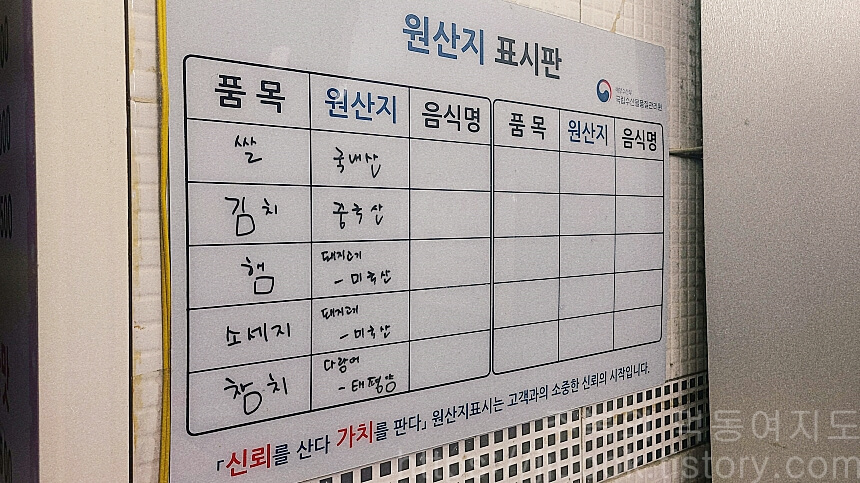 원산지 표시판
해양수산부
국립수산물품질관리원
품목 원산지 음식명 품목 원산지 음식명
쌀 국내산
김치 중국산
햄 돼지고기
- 미국산
소세지 돼지고기
- 미국산
참치 다랑어
- 태평양
「신뢰를 산다 가치를 판다」 원산지표시는 고객과의 소중한 신뢰의 시작입니다.
동여지도
tistory.com